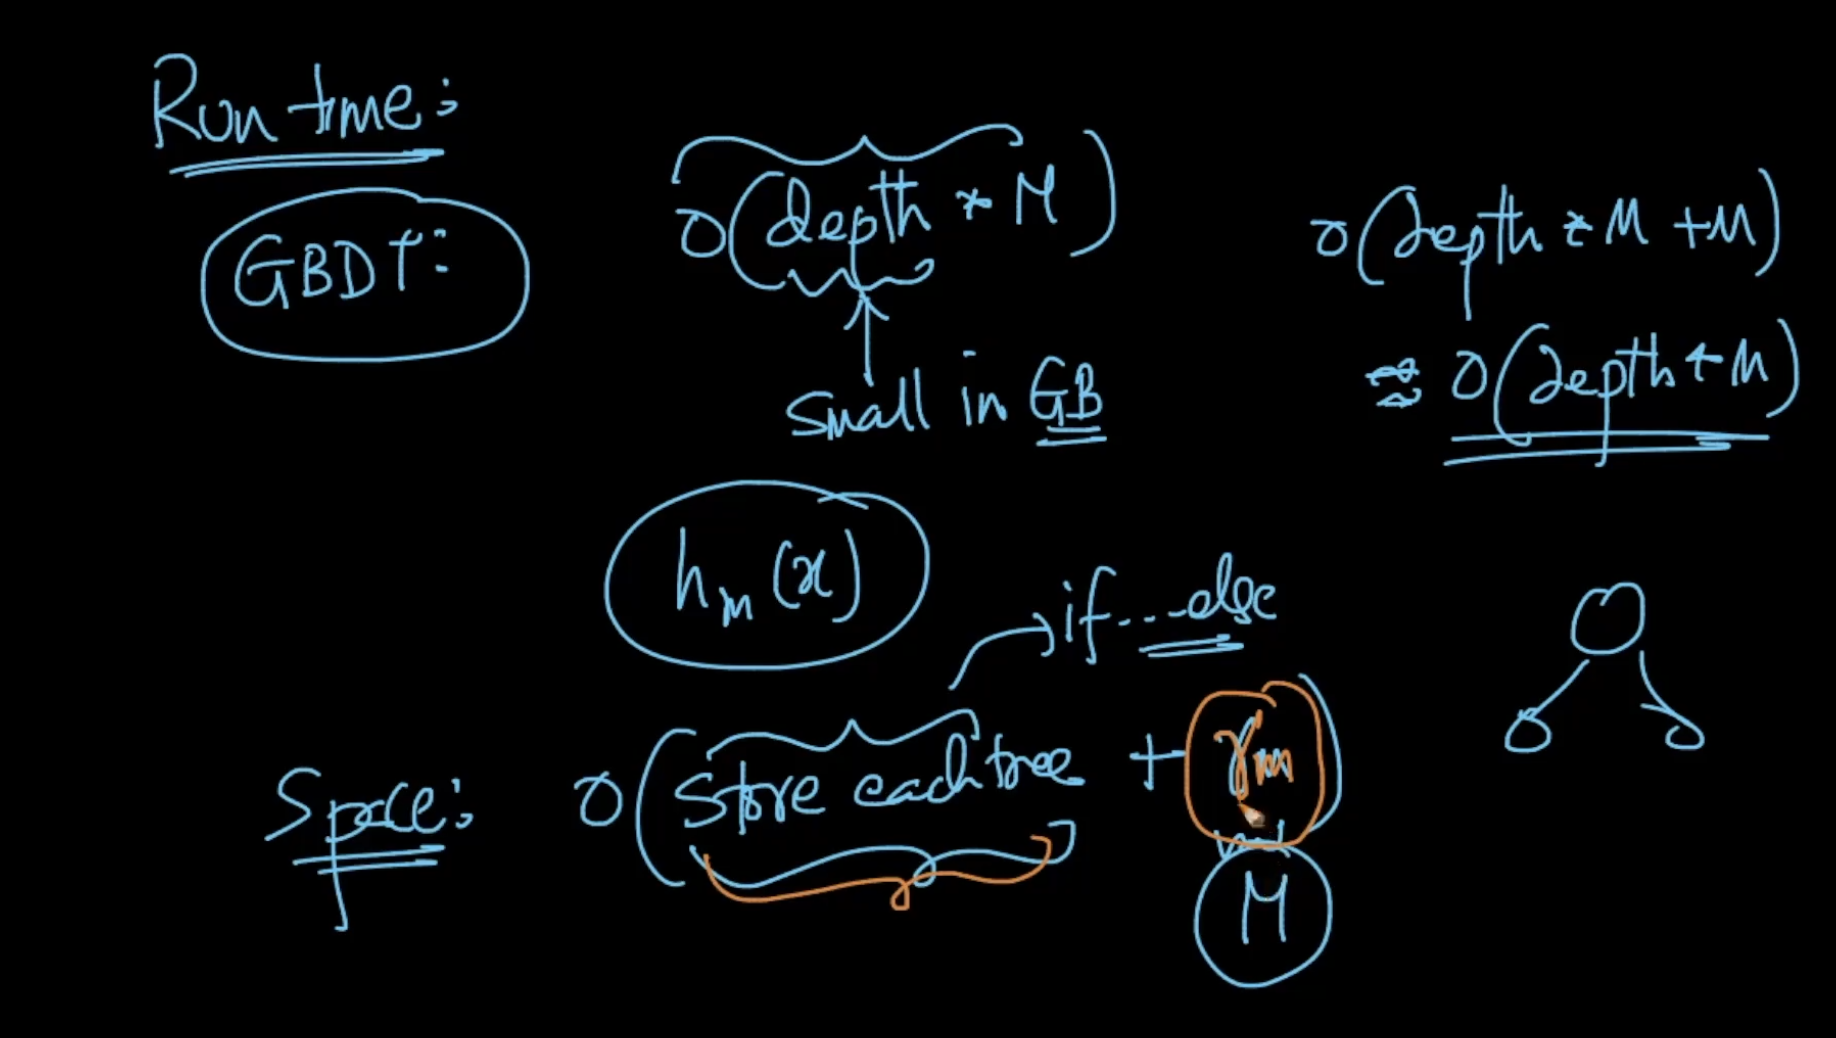 Run time:
GBDT:
O(depth * M)
small in GB
O(depth * M + M)
≈ O(depth * M)
hₘ(x)
if...else
Space: O(store each tree + γₘ)
M